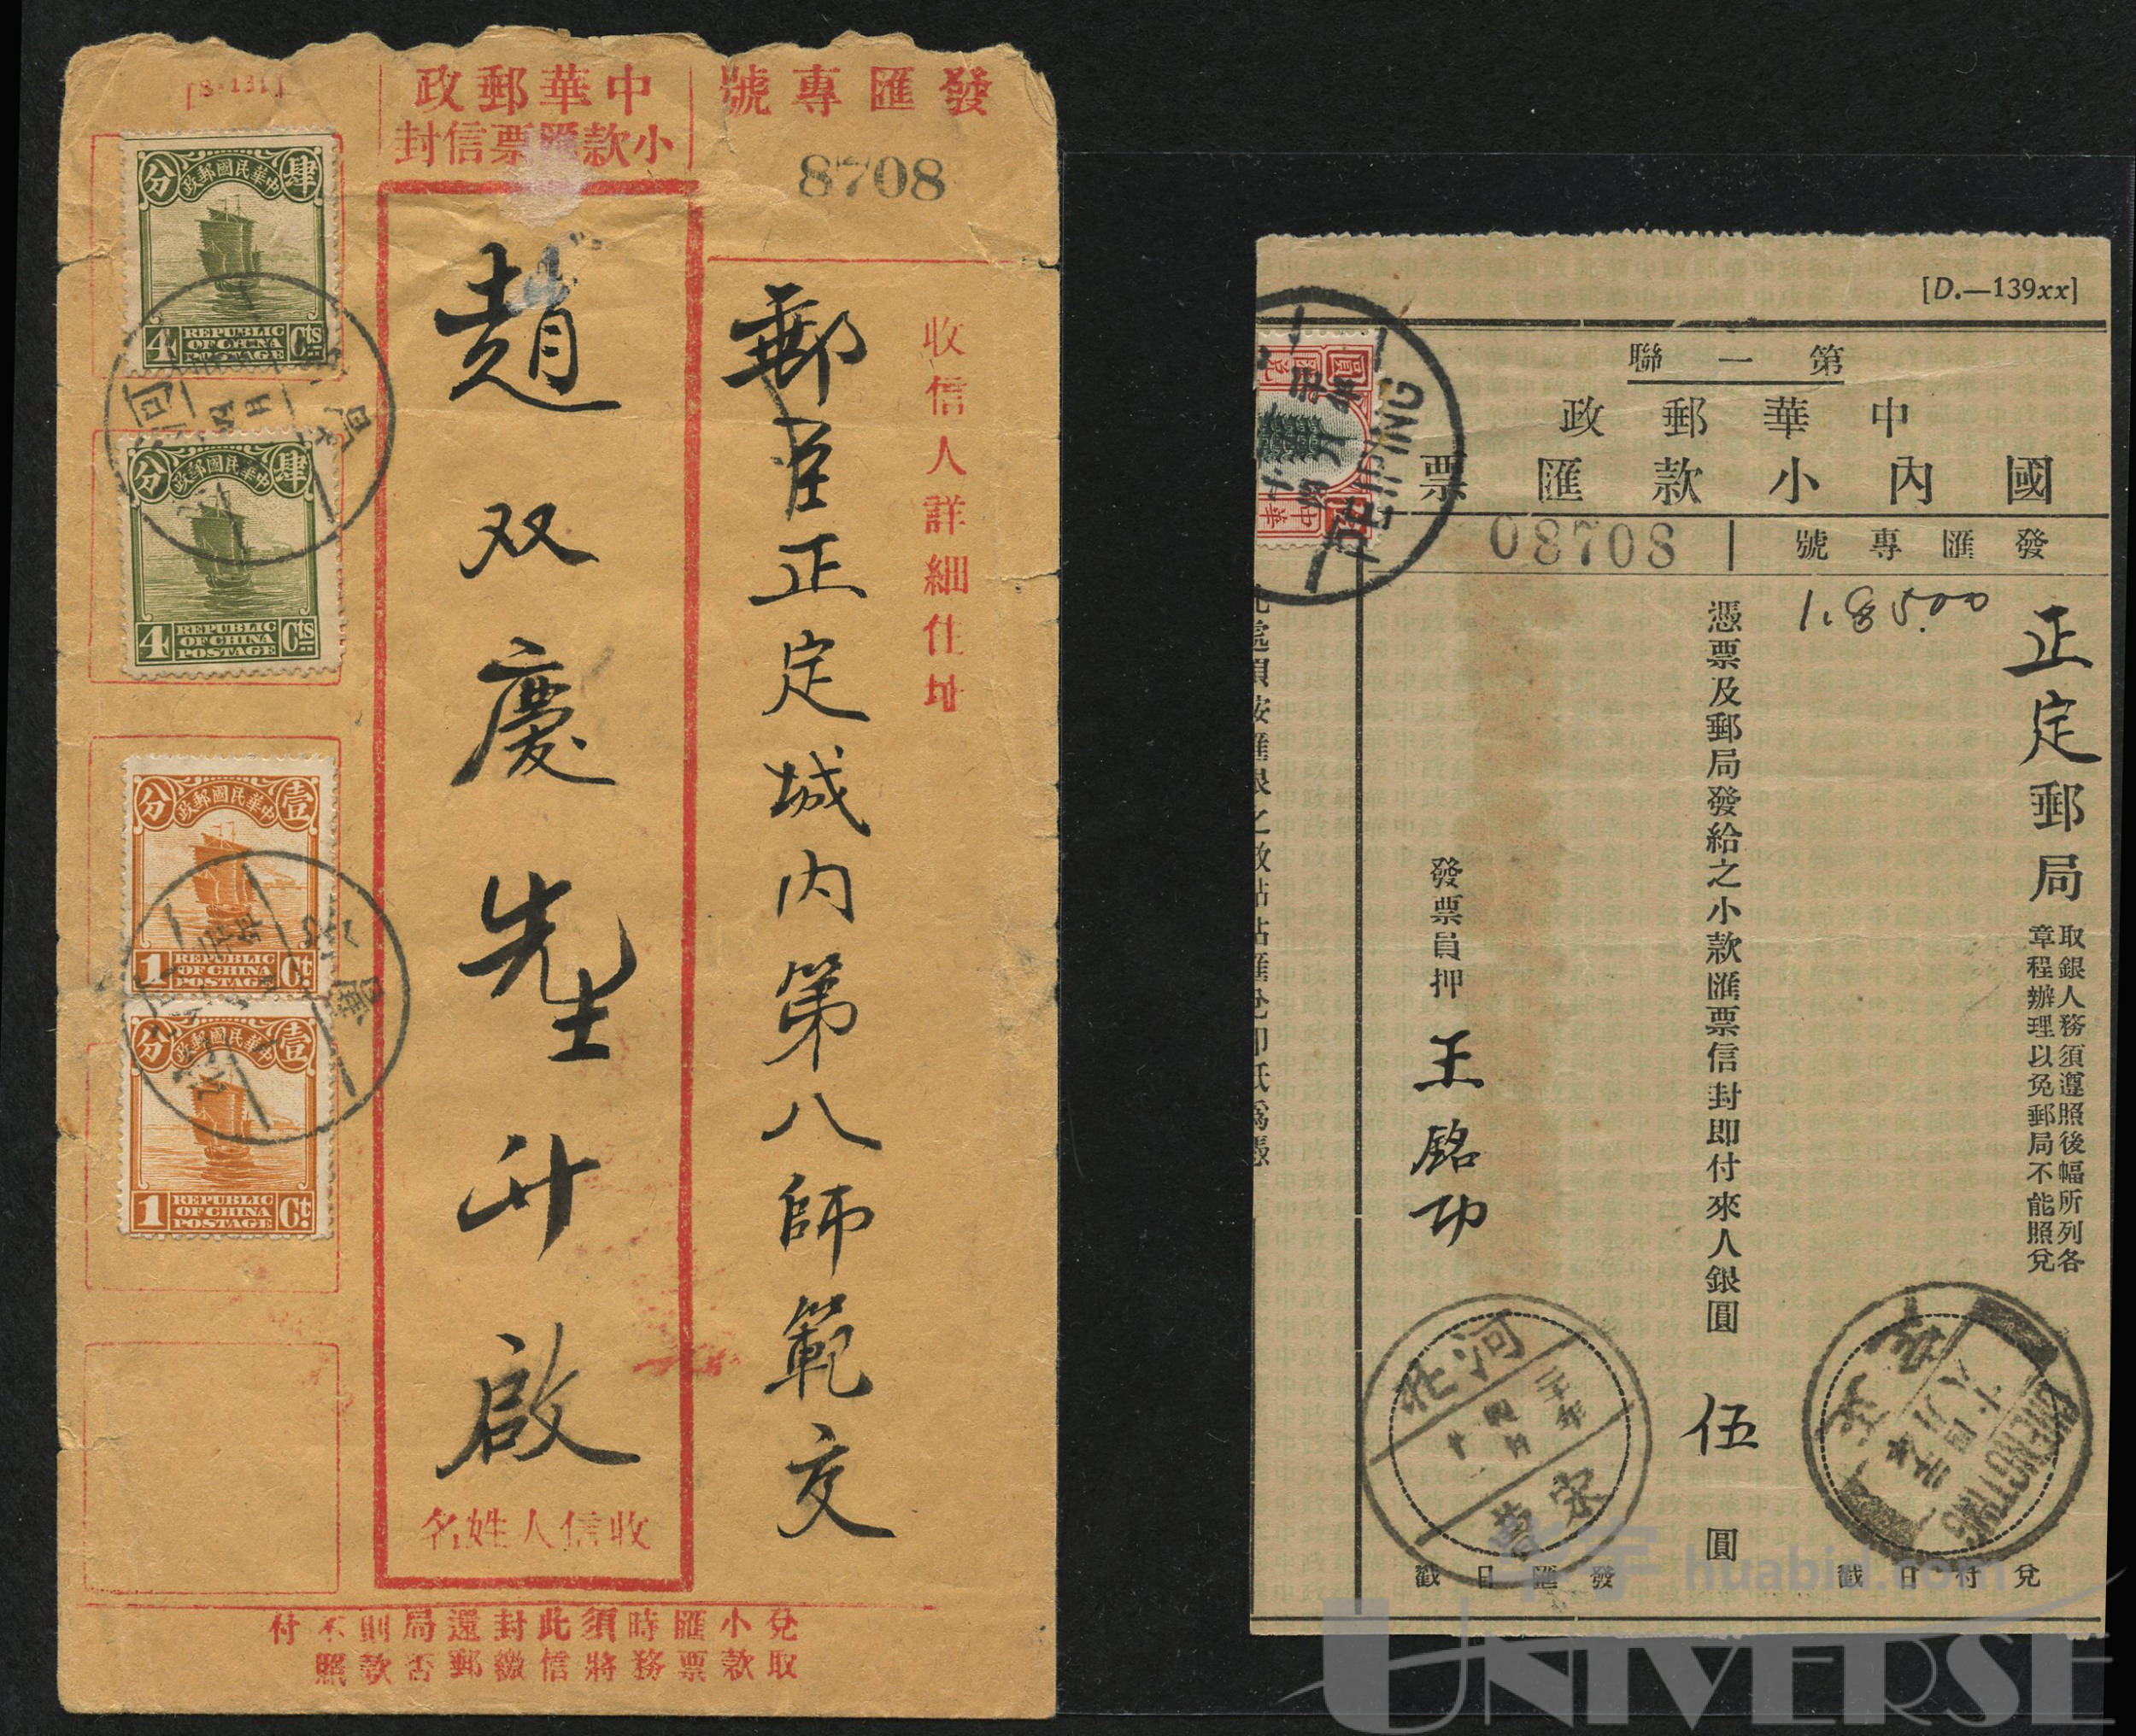 [S-131]
中華郵政
小款匯票信封
發匯專號
8708
收信人詳細住址
郵至正定城内第八師範交
趙双慶先生升啟
收信人姓名
兌取小款匯票時務須將此信封繳還郵局否則款不照付
肆
中華民國郵政
分
4
REPUBLIC
OF CHINA
POSTAGE
Cts
肆
中華民國郵政
分
4
REPUBLIC
OF CHINA
POSTAGE
Cts
壹
中華民國郵政
分
1
REPUBLIC
OF CHINA
POSTAGE
Ct.
壹
中華民國郵政
分
1
REPUBLIC
OF CHINA
POSTAGE
Ct.
[D.—139xx]
第一聯
中華郵政
國內小款匯票
發匯專號
08708
1.85.00
正定郵局
取銀人務須遵照後幅所列各
章程辦理以免郵局不能照兌
憑票及郵局發給之小款匯票信封即付來人銀圓 伍 圓
發票員押 王銘功
PEIPING
河北
CHENGTING
發匯日戳
兌付日戳
huabid.com
UNIVERSE